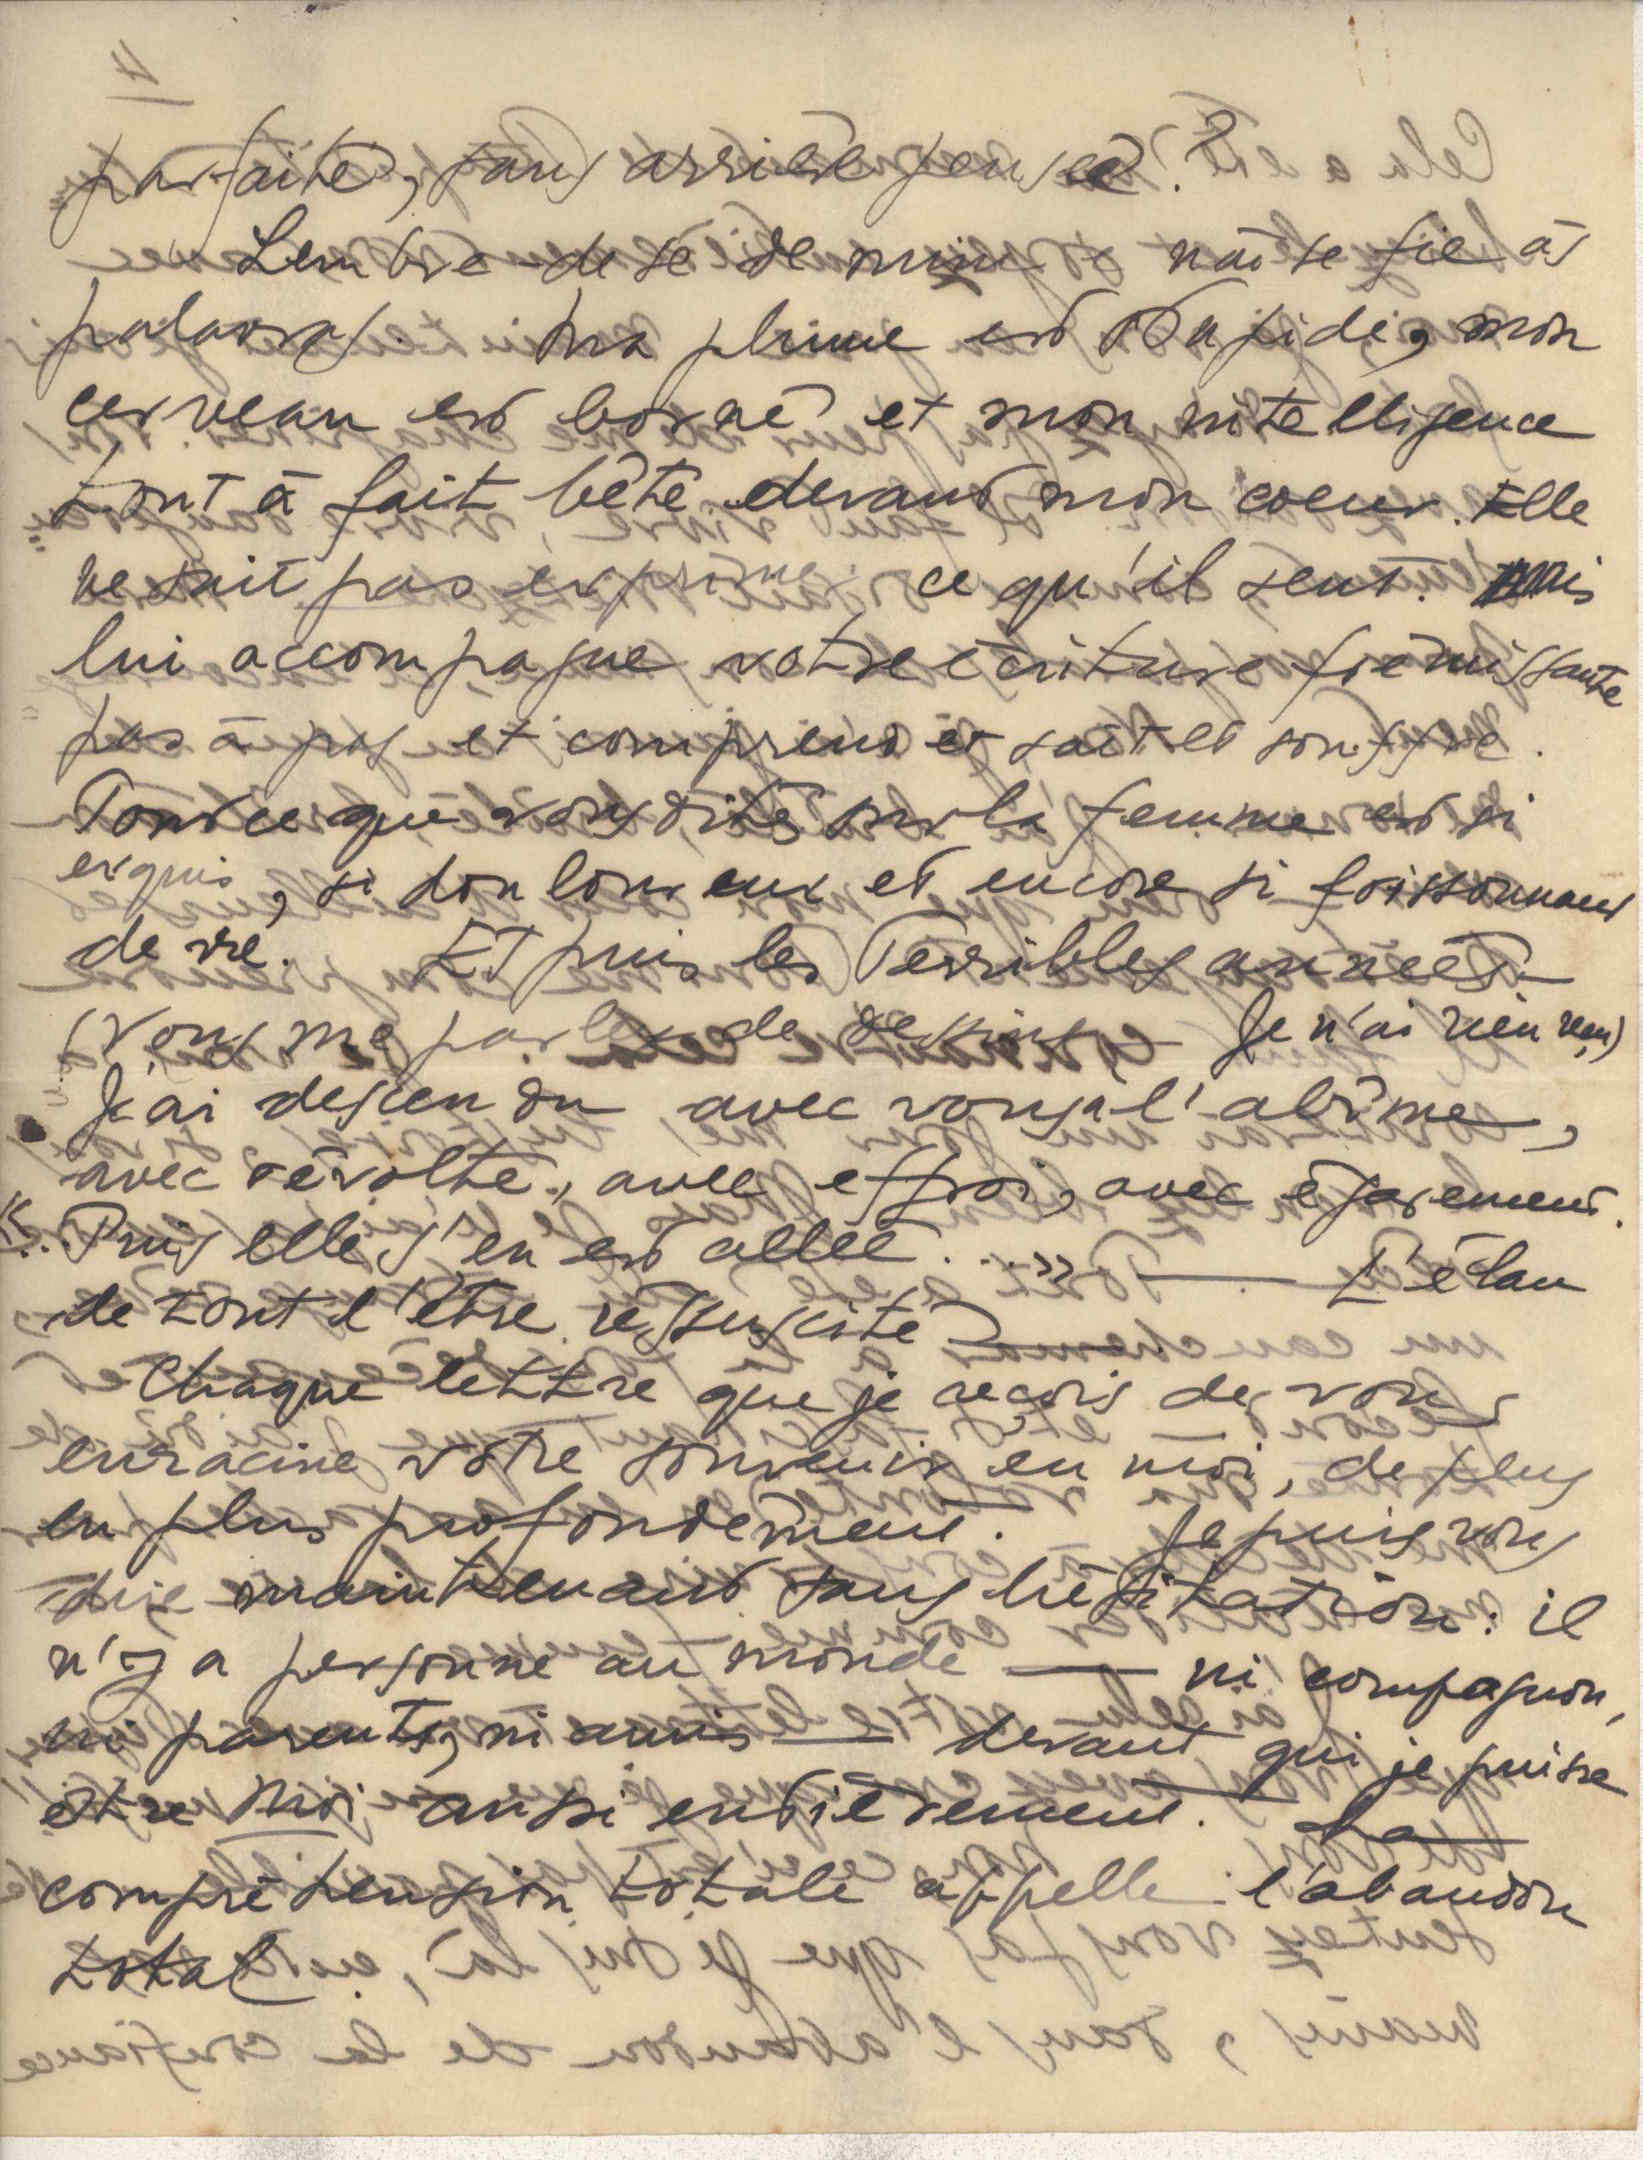 parfaite, sans arrière pensée?
Lembre-de se de mim e não se fie às
palavras. Ma plume est stupide, mon
cerveau est borné et mon intelligence
tout à fait bête devant mon coeur. Elle
ne sait pas exprimer ce qu'il sent. Mais
lui accompagne votre écriture frémissante
pas à pas et comprend et sait et souffre.
Tout ce que vous dites sur la femme est si
exquis, si douloureux et encore si foissonnant
de vie. Et puis les Terribles années
(Vous me parlez de dessins — Je n'ai rien reçu)
J'ai descendu avec vous à l'abîme,
avec révolte, avec effroi, avec égarement.
"... Puis elle s'en est allée...." — L'élan
de tout l'être ressuscité —
Chaque lettre que je reçois de vous
enracine votre souvenir en moi, de plus
en plus profondément. Je puis vous
dire maintenant sans hésitation: il
n'y a personne au monde — ni compagnon,
ni parents, ni amis — devant qui je puisse
être moi aussi entièrement. La
compréhension totale appelle l'abandon
total.